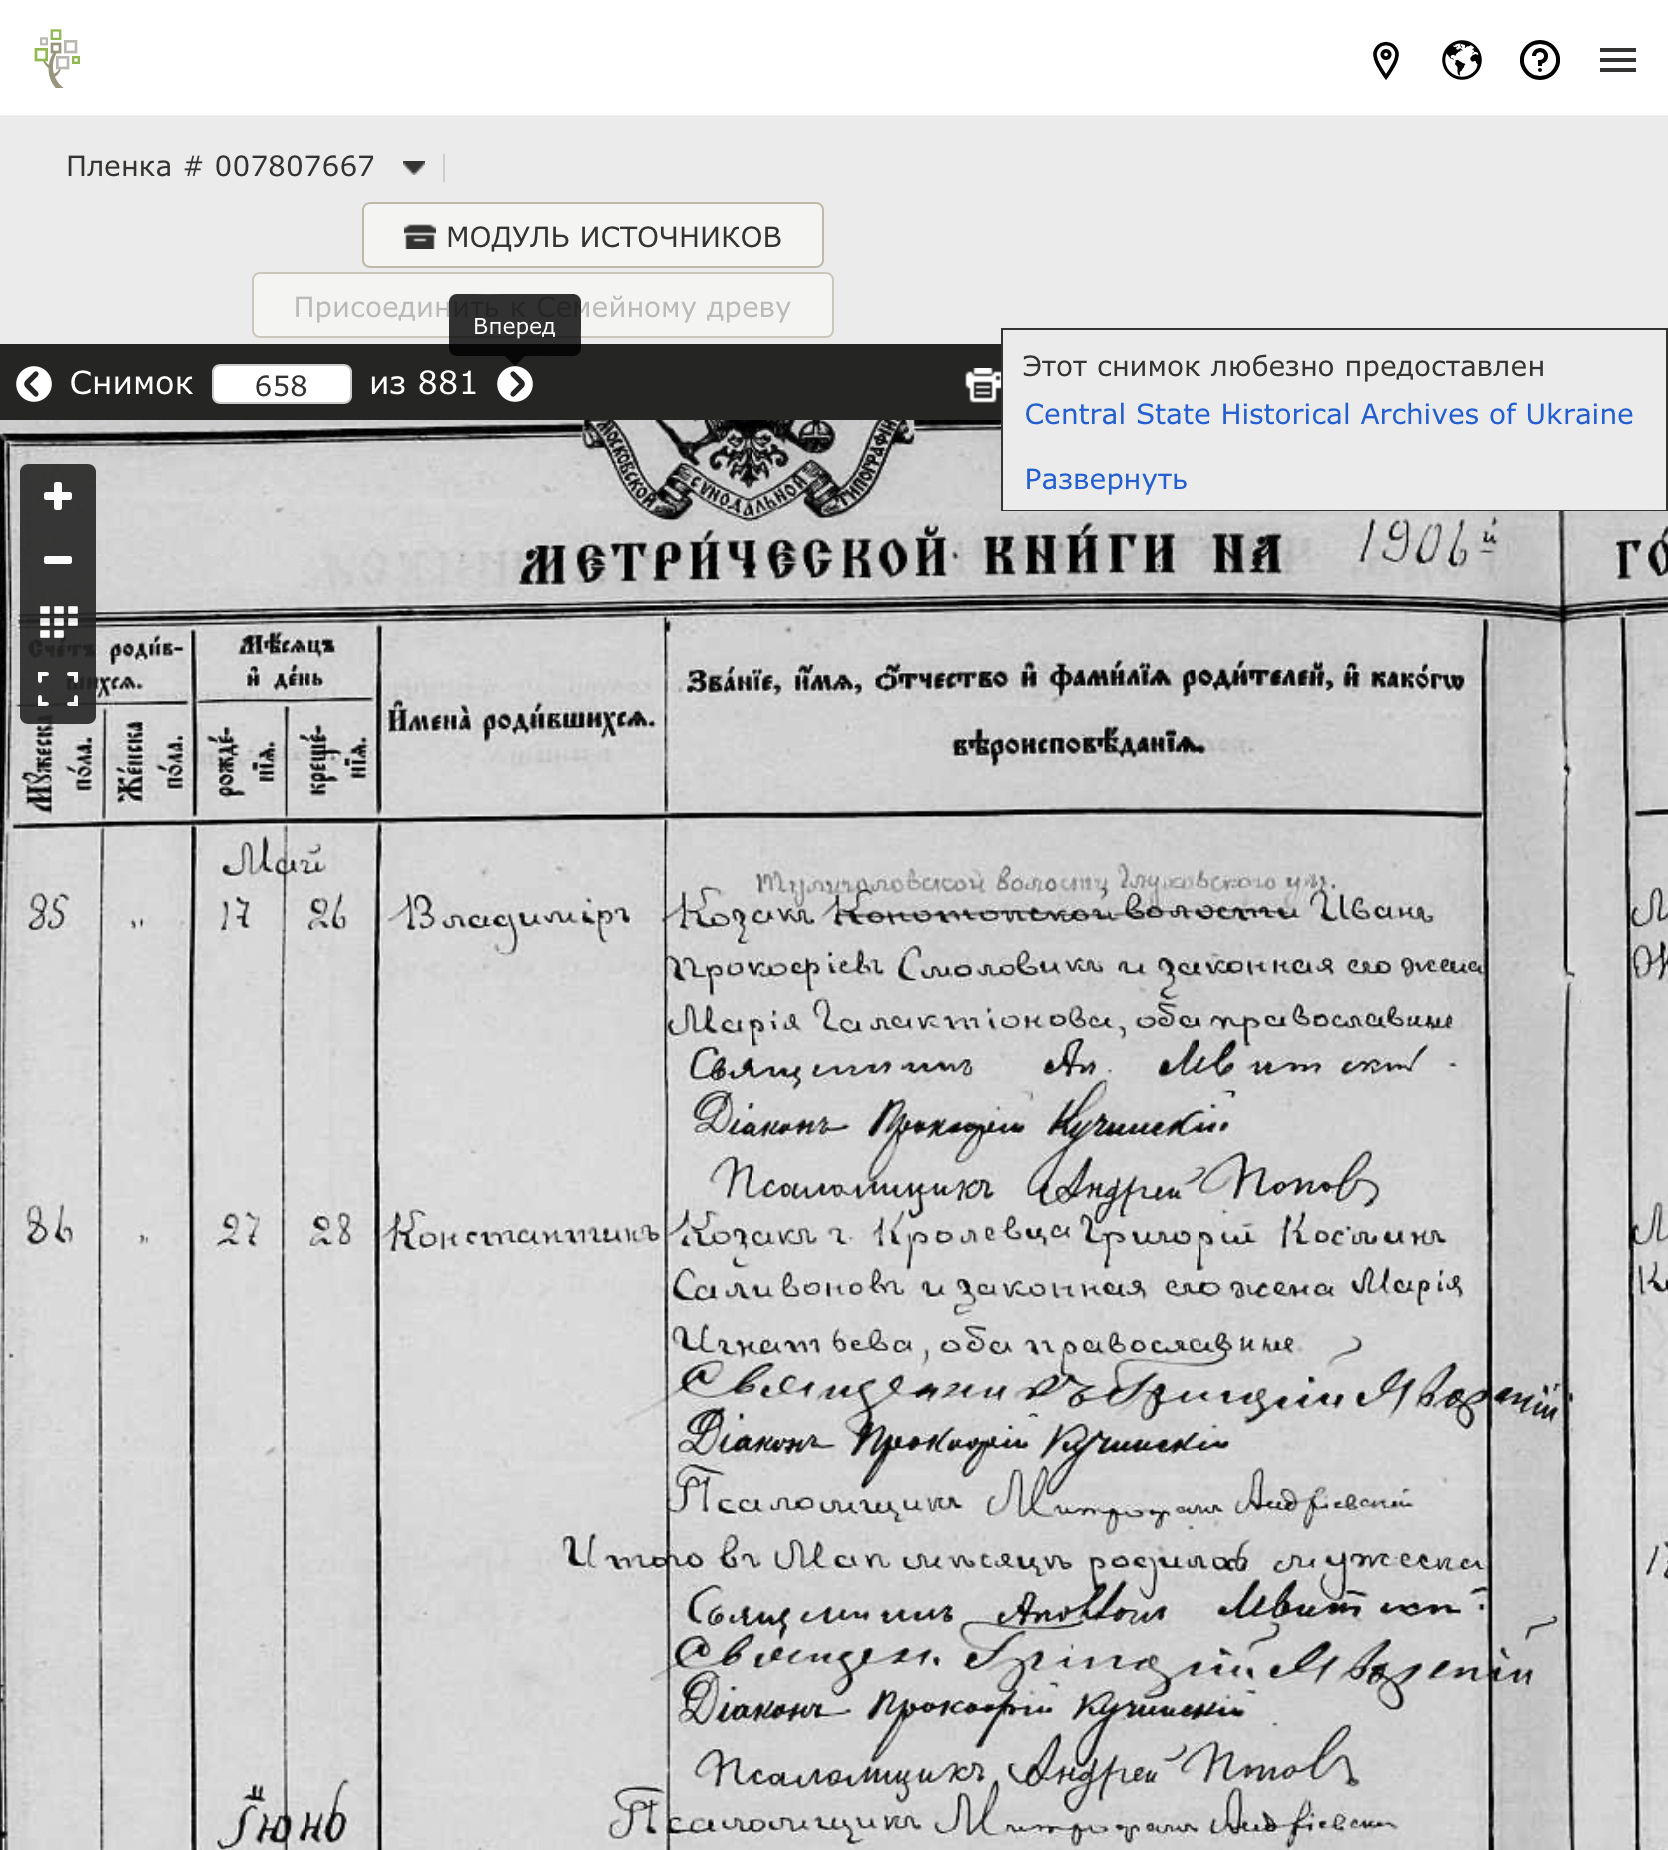 Пленка # 007807667
МОДУЛЬ ИСТОЧНИКОВ
Присоединить к Семейному древу
Вперед
Снимок 658 из 881
Этот снимок любезно предоставлен
Central State Historical Archives of Ukraine
Развернуть
МОСКОВСКОЙ СѴНОДАЛЬНОЙ ТИПОГРАФІИ
МЕТРИ́ЧЕСКОЙ КНИ́ГИ НА 1906й ГО́
Счетъ роди́в-
шихсѧ.
Мѣ́сѧцъ
и҆ де́нь
Мꙋжеска по́ла.
Же́нска по́ла.
рожде́-нїѧ.
креще́-нїѧ.
И҆мена̀ роди́вшихсѧ.
Зва́нїе, и҆́мѧ, ѻ҆́тчество и҆ фами́лїѧ роди́телей, и҆ како́гѡ
вѣроисповѣ́данїѧ.
Май
Тулиголовской волости Глуховского у.
85 „ 17 26 Владиміръ Козакъ Конотопской волости Иванъ
Прокофіевъ Смоловикъ и законная его жена
Марія Галактіонова, оба православные
Священникъ Ап.
Діаконъ Прокофій Кучинскій
Псаломщикъ Андрей Попов
86 „ 27 28 Константинъ Козакъ г. Кролевца Григорій Косминъ
Саливоновъ и законная его жена Марія
Игнатьева, оба православные
Священникъ Григорій
Діаконъ Прокофій Кучинскій
Псаломщикъ Митрофанъ Андріевскій
Итого въ Маѣ мѣсяцѣ родилось мужеска
Священникъ
Священ. Григорій
Діаконъ Прокофій Кучинскій
Псаломщикъ Андрей Попов
Іюнь
Псаломщикъ Митрофанъ Андріевскій